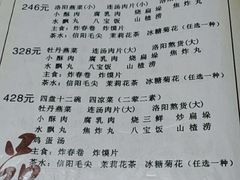 246元 洛阳燕菜(小) 连汤肉片(小) 洛阳熬货(小)
小酥肉 腐乳肉 烧扁垛 焦炸丸
水飘丸 八宝饭 山楂涝
主食：炸春卷 炸馍片
茶水：信阳毛尖 茉莉花茶 冰糖菊花（任选一种）
328元 牡丹燕菜 连汤肉片(大) 洛阳熬货(大)
小酥肉 腐乳肉 烧扁垛 焦炸丸
水飘丸 八宝饭 山楂涝
主食：炸春卷 炸馍片
茶水：信阳毛尖 茉莉花茶 冰糖菊花（任选一种）
428元 四盘十二碗 四凉菜（二荤二素）
牡丹燕菜 连汤肉片(大) 洛阳熬货(大)
小酥肉 腐乳肉 烧三鲜 炒扁垛
水飘丸 焦炸丸 八宝饭 山楂涝
鸡蛋汤
主食：炸春卷 炸馍片
茶水：信阳毛尖 茉莉花茶 冰糖菊花（任选一种）